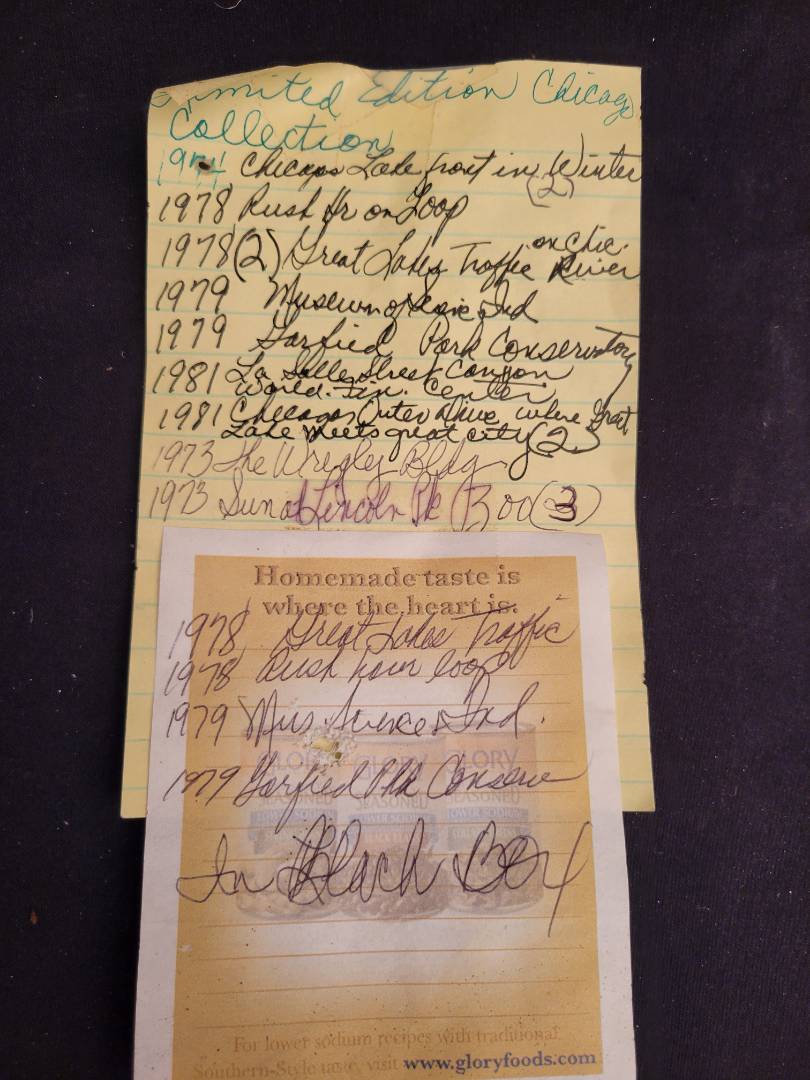 Limited Edition Chicago
Collection
Chicago Lake front in Winter
(2)
1978 Rush Hr on Loop
on Chic.
1978 (2) Great Lakes Traffic River
1979 Museum of Scie & Ind
1979 Garfied Park Conservatory
1981 La Salle Street Canyon
World. Fin. Center
1981 Chicagos Outer Drive, where Great
Lake Meets great city (2)
1973 The Wrigly Bldg
1973 Sun at Lincoln Pk Zoo (3)
Homemade taste is
where the heart is.
1978 Great Lakes Traffic
1978 Rush hour loop
1979 Mus. Science & Ind.
1979 Garfied Pk Conserv
GLORY GLORY GLORY
SEASONED SEASONED SEASONED
LOWER SODIUM LOWER SODIUM
In Black Box
For lower sodium recipes with traditional
Southern-Style taste, visit www.gloryfoods.com